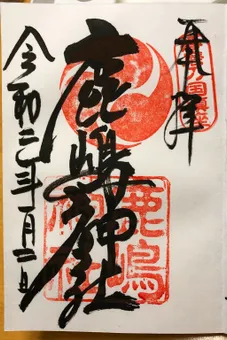 奉拝
鹿嶋神社
鹿嶋神社
令和二年一月二日